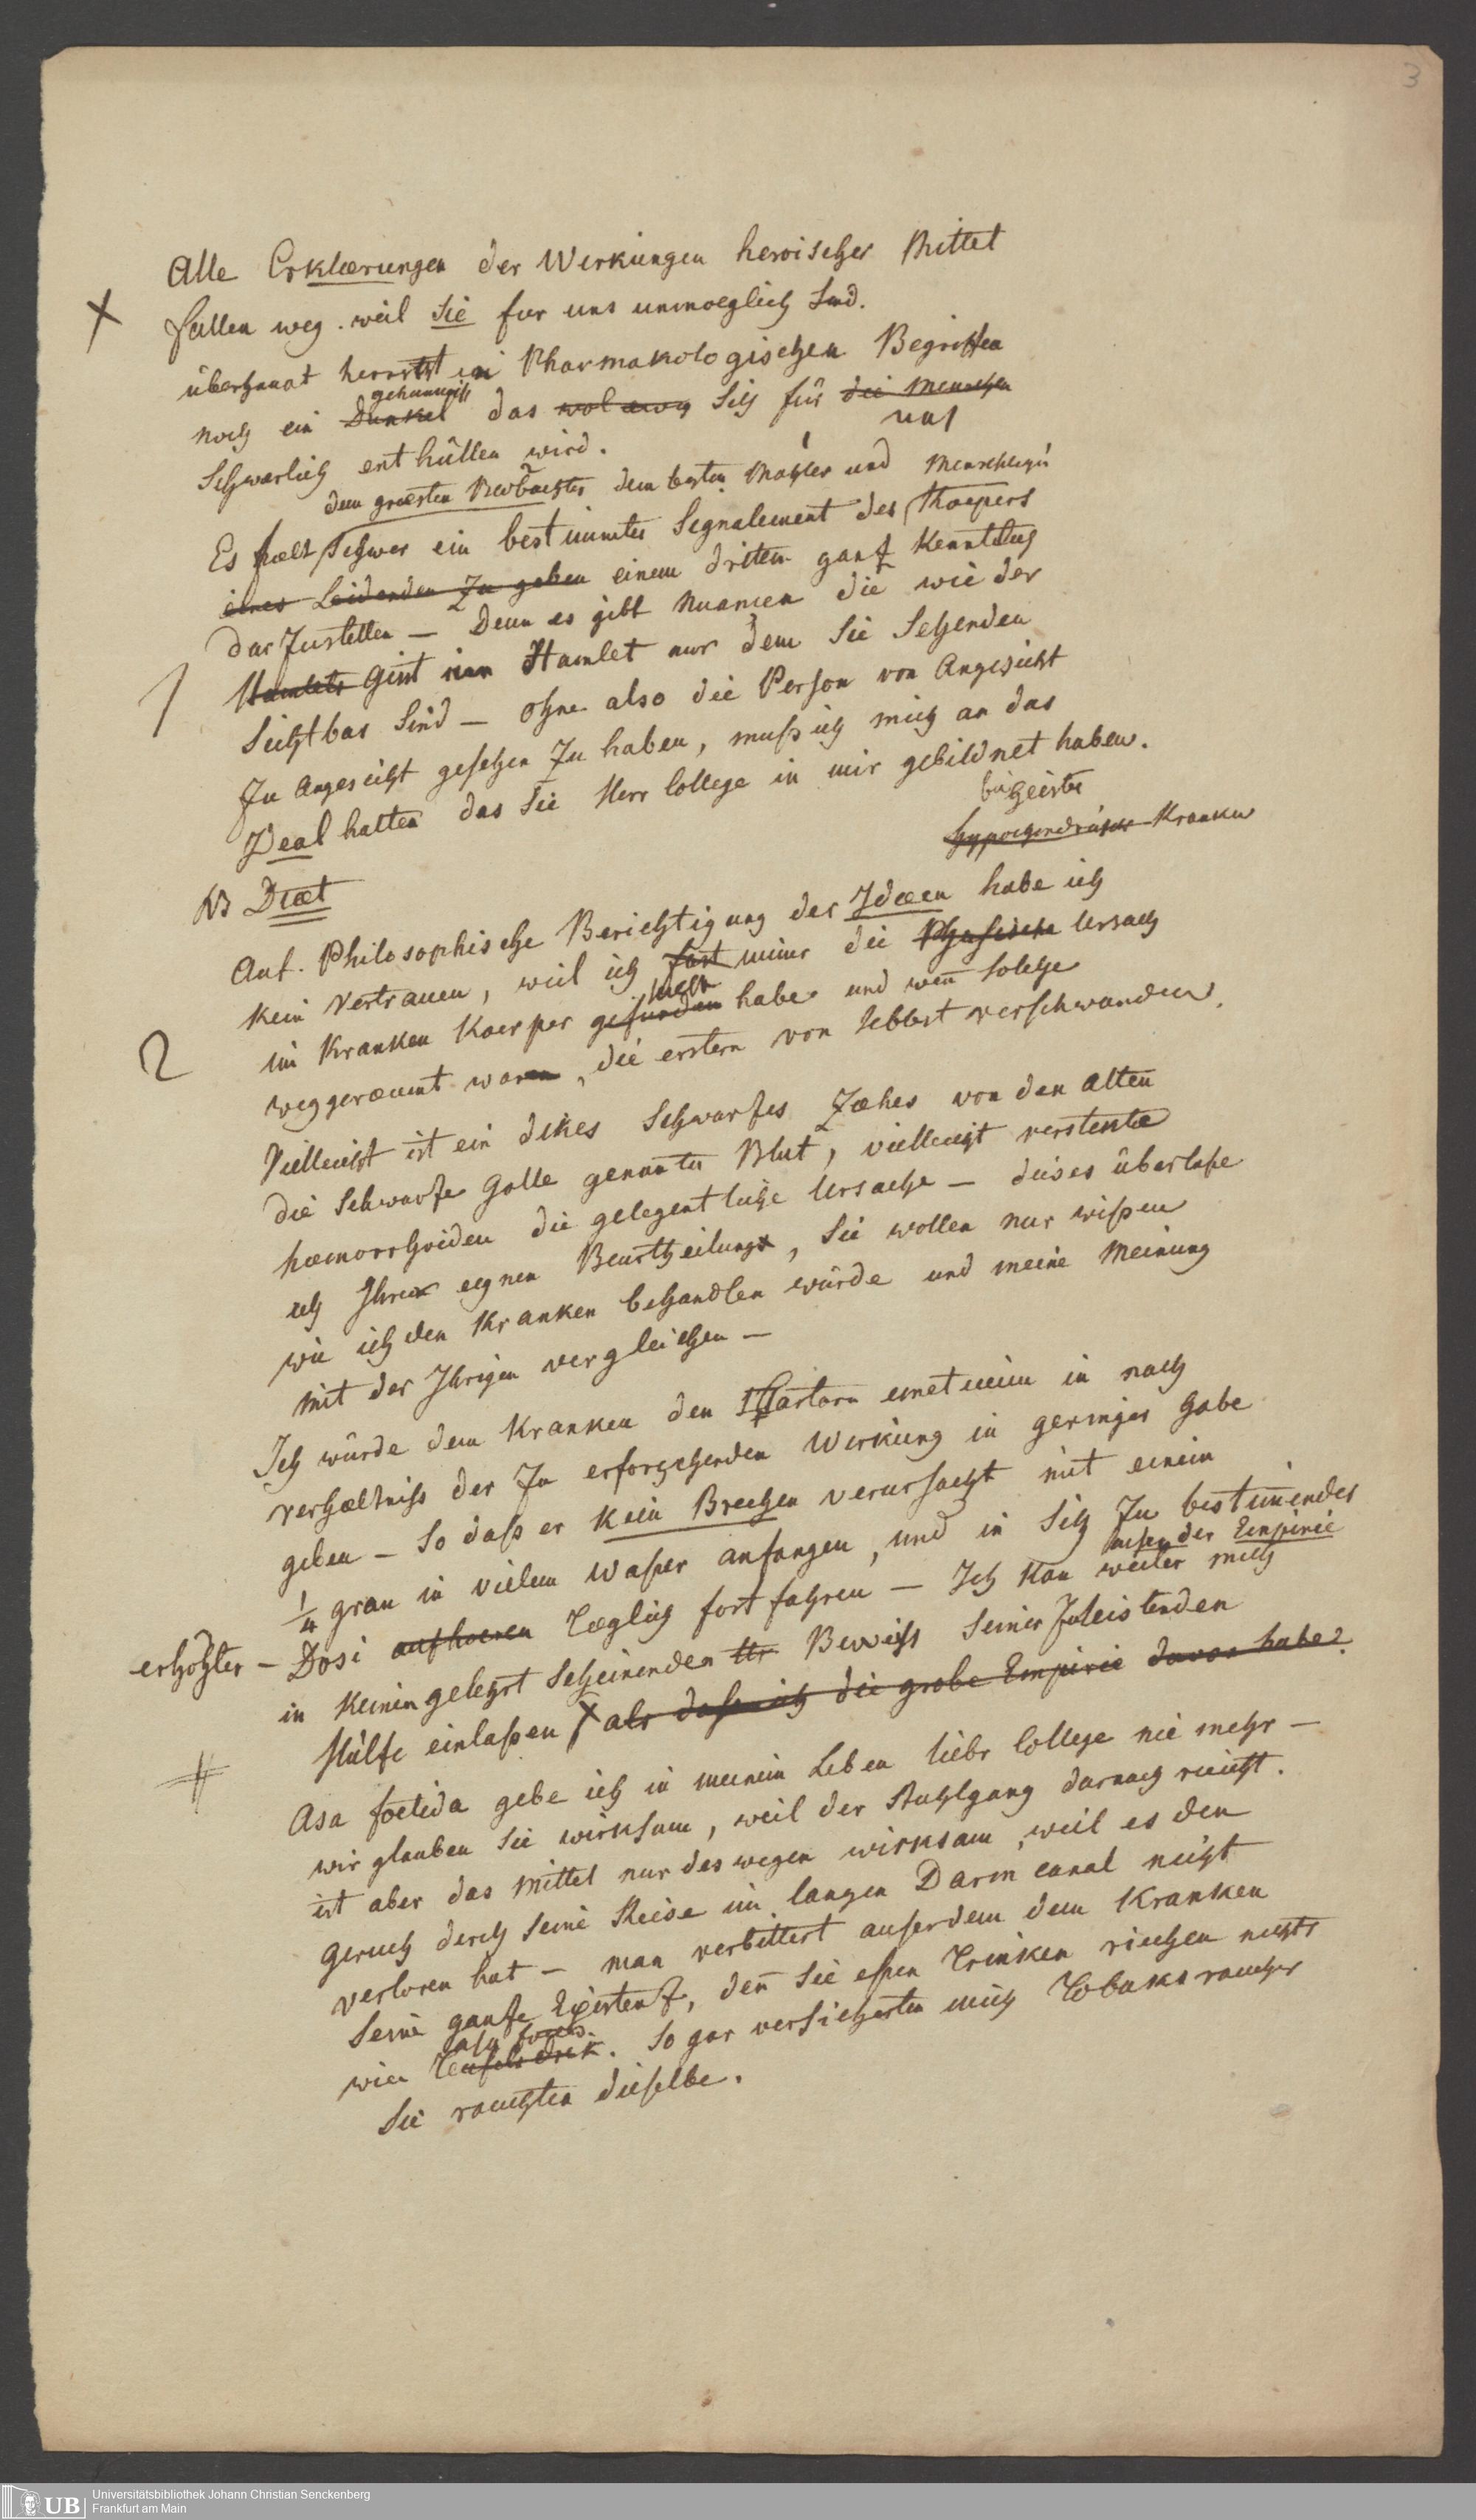 3
Alle Erklærungen der Wirkungen heroischer Mittel
fallen weg. weil Sie fur uns unmoeglich Sind.
überhaupt herrscht in Pharmakologischen Begriffen
geheimniss
noch ein Dunkel das wol ewig Sich für die Menschen
uns
Schwerlich enthüllen wird.
dem græsten Beobachter dem besten Mahler und
Es hælt Schwer ein bestimmtes Signalement des Koerpers
eines Leidenden Zu geben einem driten ganz Kenntlich
darzustellen — Denn es gibt Nuancen die wie der
1
Hamlets Geist im Hamlet nur dem Sie Sehenden
Sichtbar Sind — ohne also die Person von Angesicht
Zu Angesicht gesehen Zu haben, muß ich mich an das
Ideal halten das Sie Herr College in mir gebildnet haben.
NB Diæt
Hypochondrische Kranken
Auf. Philosophische Berichtigung der Idæen habe ich
Kein Vertrauen, weil ich fast immer die Physische Ursach
2
im Kranken Koerper gefunden habe und weñ Solche
weggeræumt waren, die erstern von Selbst verschwanden.
Vielleicht ist ein dikes Schwarzes Zæhes von den Alten
die Schwarze Galle genanntes Blut, vielleicht verstekte
hæmorrhoiden die gelegentliche Ursache — dieses überlaße
ich Ihrer eignen Beurtheilung, Sie wollen nur wißen
wie ich den Kranken behandlen würde und meine Meinung
mit der Ihrigen vergleichen —
Ich würde dem Kranken den Tartarn emeticum in nach
verhæltniss der Zu erforschenden Wirkung in geringer Gabe
geben — So daß er kein Brechen verursacht mit einem
1/4 gran in vielem Waßer anfangen, und in Sich Zu bestimender
außer der Empirie
erhöhter — Dosi aufhoeren Tæglich fortfahren — Ich kan weiter mich
in Keinen gelehrt Scheinenden Beweiss Seiner Zuleistenden
Hülfe einlaßen als daß ich die grobe Empirie davon habe.
Asa foetida gebe ich in meinem Leben liebr College nie mehr —
wir glauben Sie wirksam, weil der Stuhlgang darnach riecht.
ist aber das Mittel nur deswegen wirksam, weil es den
Geruch durch Seine Reise im langen Darm canal nicht
verloren hat — man verbittert außerdem dem Kranken
Seine ganze Existenz, deñ Sie eßen Trinken riechen nichts
asa foetid.
wie Teufelsdrek. So gar versicherten mich Tobaksraucher
Sie rauchten dieselbe.
UB
Universitätsbibliothek Johann Christian Senckenberg
Frankfurt am Main